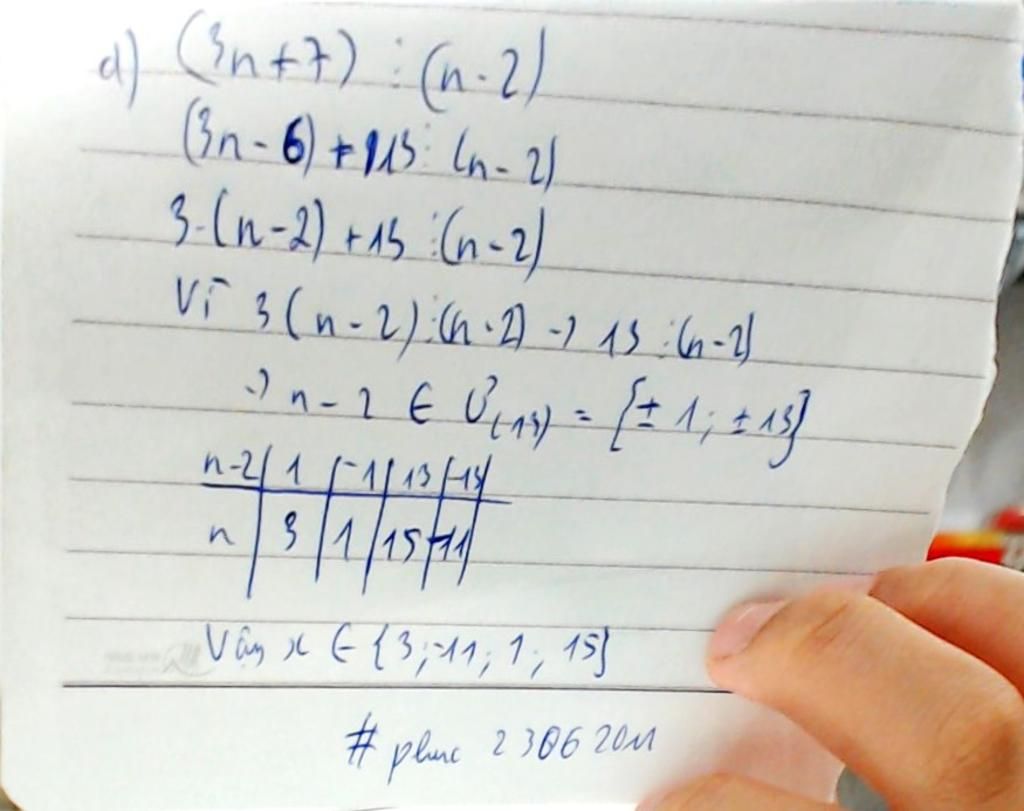 d) (3n+7) ⋮ (n-2)
(3n-6)+13 ⋮ (n-2)
3.(n-2)+13 ⋮ (n-2)
Vì 3(n-2) ⋮ (n-2) → 13 ⋮ (n-2)
→ n-2 ∈ Ư(13) = {±1; ±13}
n-2 | 1 | -1 | 13 | -13
n | 3 | 1 | 15 | -11
Vậy x ∈ {3; -11; 1; 15}
# phuc 23062011